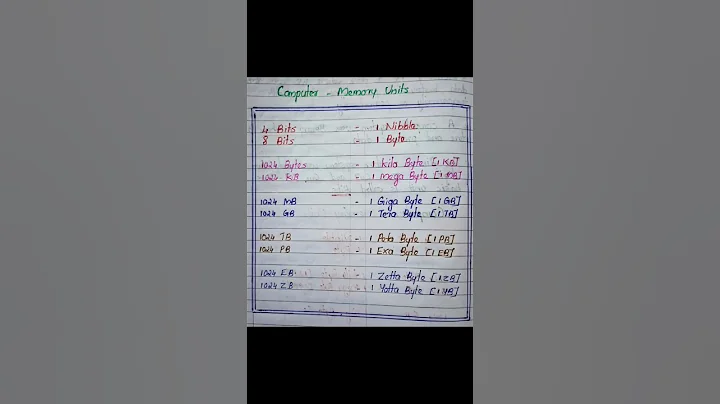 Computer - Memory Units
4 Bits - 1 Nibble
8 Bits - 1 Byte
1024 Bytes - 1 Kilo Byte [1 KB]
1024 KB - 1 Mega Byte [1 MB]
1024 MB - 1 Giga Byte [1 GB]
1024 GB - 1 Tera Byte [1 TB]
1024 TB - 1 Peta Byte [1 PB]
1024 PB - 1 Exa Byte [1 EB]
1024 EB - 1 Zetta Byte [1 ZB]
1024 ZB - 1 Yotta Byte [1 YB]